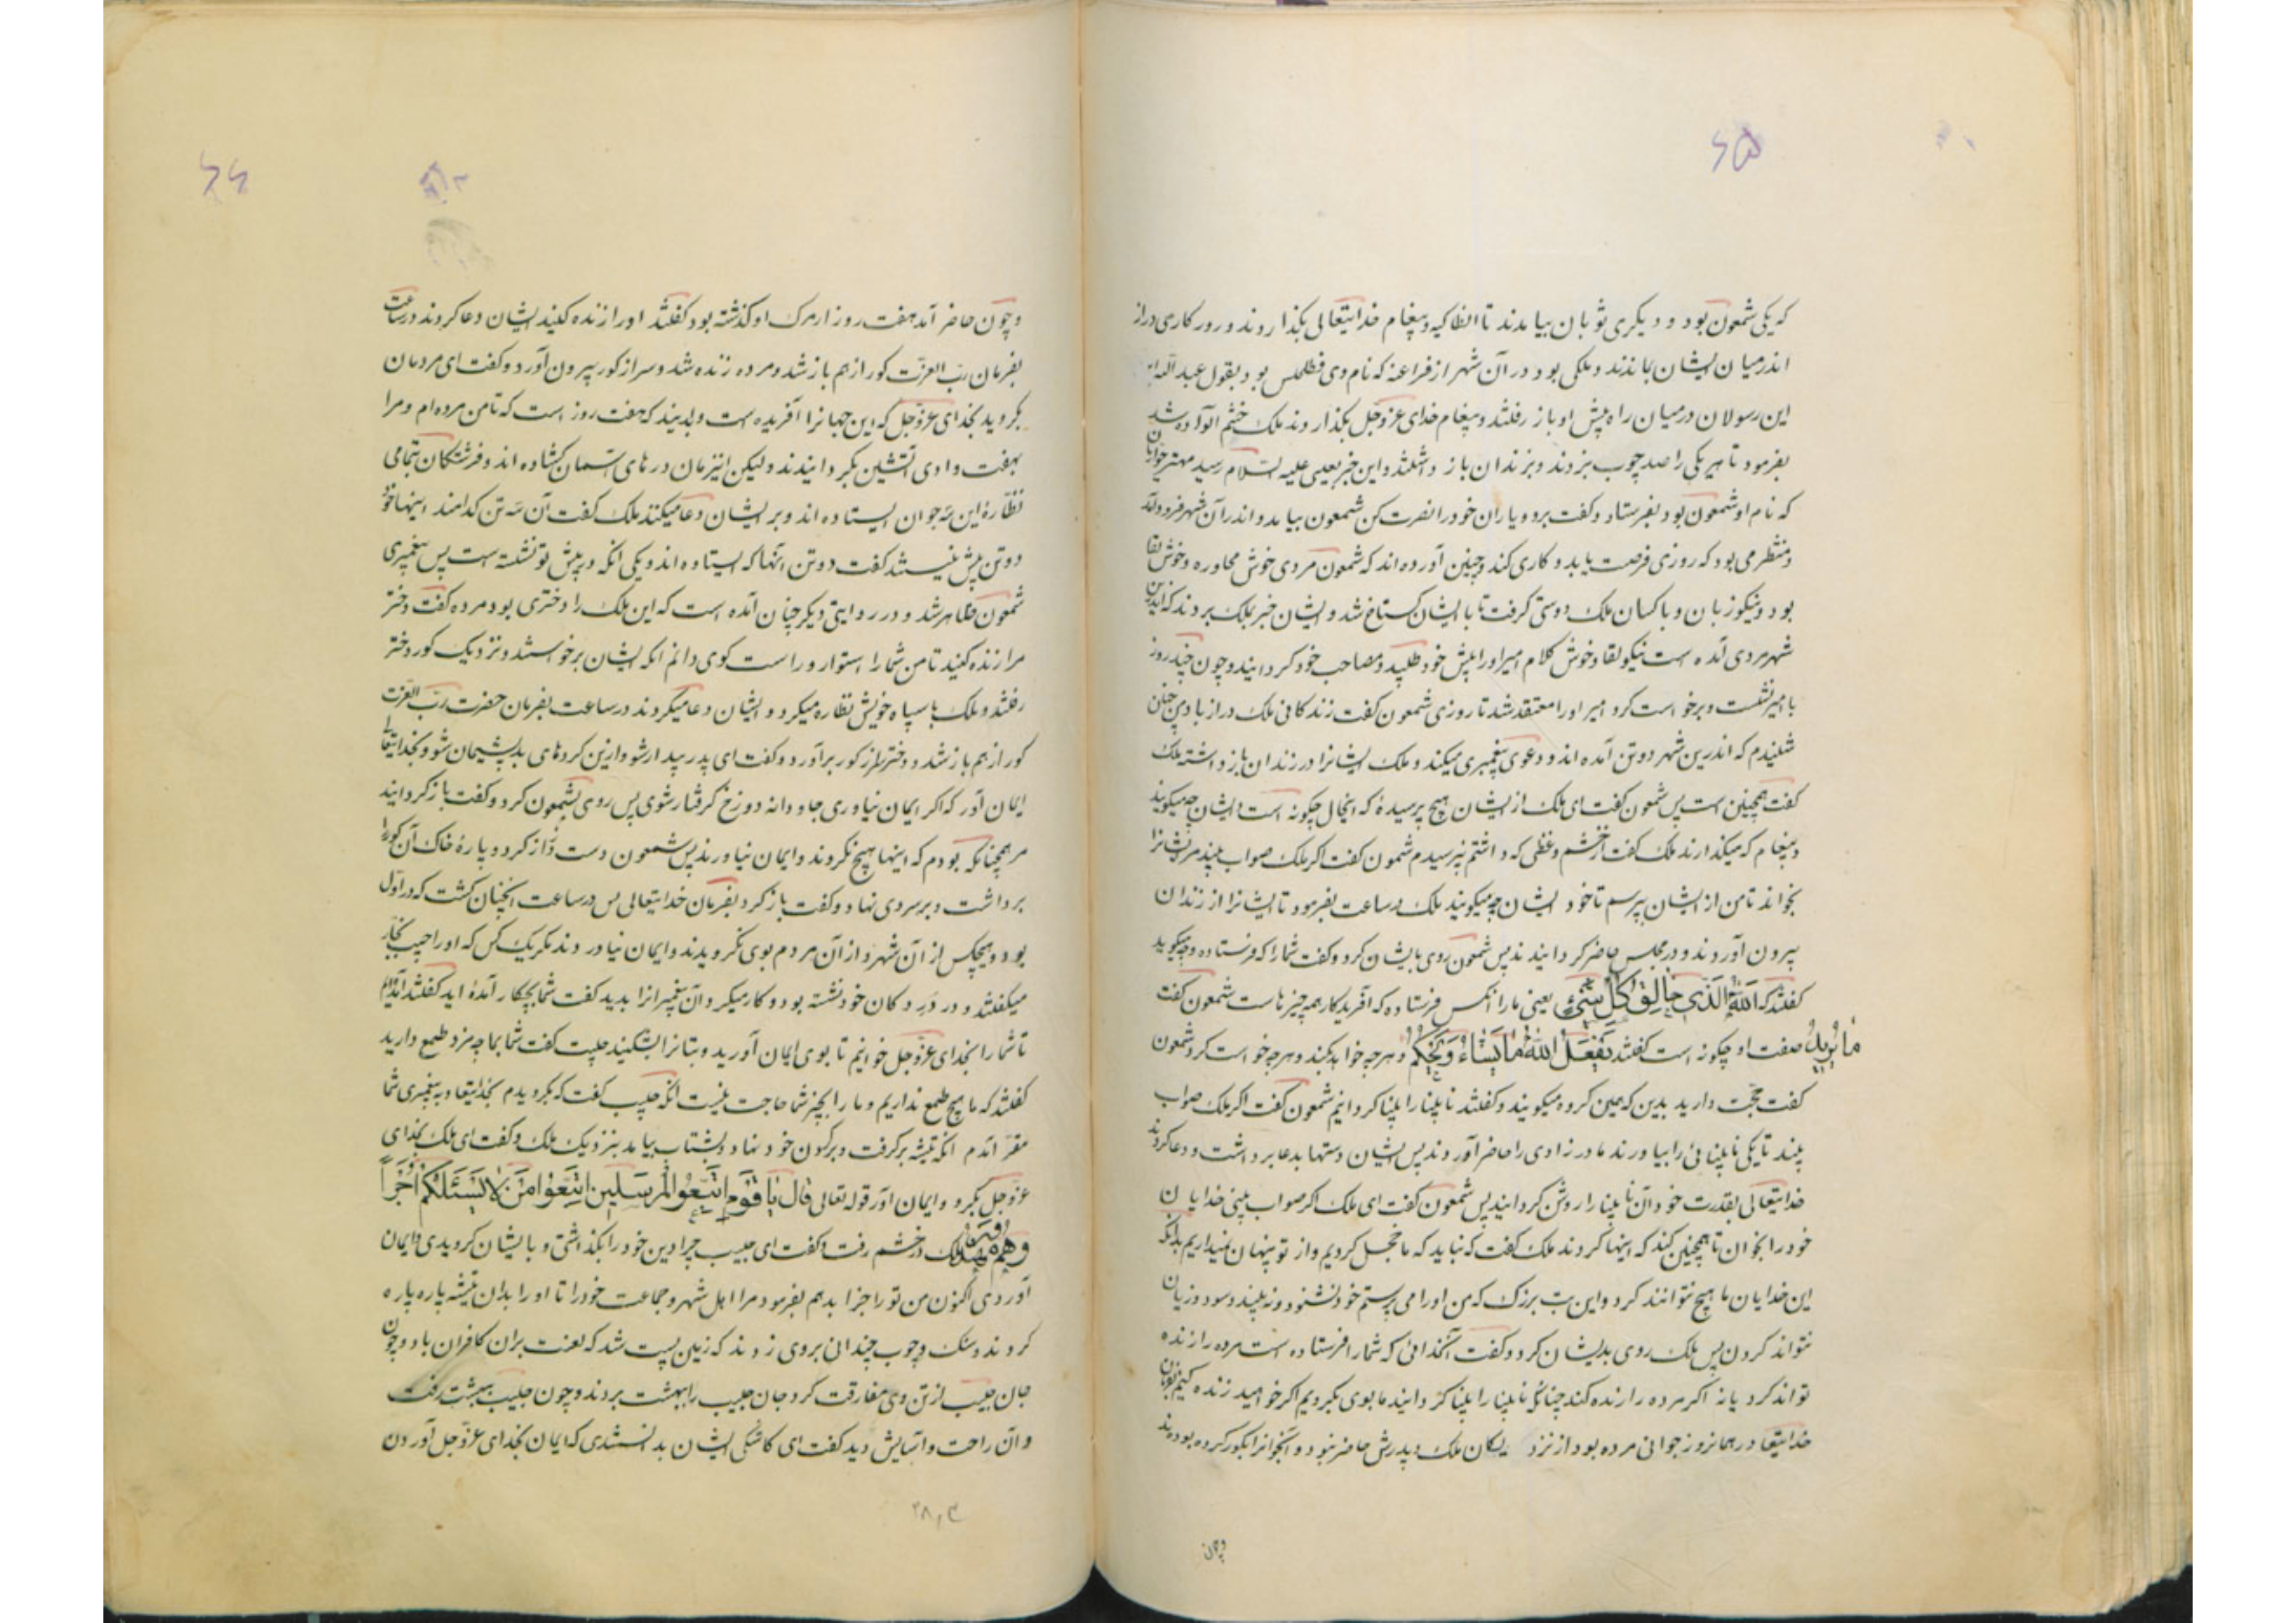 ۶۵
که یکی شمعون بود و دیگری ثوبان بیامدند تا انطاکیه و پیغام خدایتعالی بگذاردند و روزکاری دراز
اندر میان ایشان بماندند و ملکی بود در آن شهر از فراعنه که نام وی فطلحلس بود بقول عبد الله
این رسولان در میان راه پیش او باز رفتند و پیغام خدای عزوجل بگذاردند ملک خشم آلوده شد
بفرمود تا هر یکی را صد چوب بزدند و بزندان باز داشتند و این خبر بعیسی علیه السلام رسید مهتر حواریان
که نام او شمعون بود بفرستاد و گفت برو و یاران خود را نصرت کن شمعون بیامد و اندر آن شهر فرود آمد
و منتظر می بود که روزی فرصت یابد و کاری کند و چنین آورده اند که شمعون مردی خوش محاوره و خوش لقا
بود و نیکو زبان و با کسان ملک دوستی گرفت تا با ایشان گستاخ شد و ایشان خبر بملک بردند که اندرین
شهر مردی آمده است نیکو لقا و خوش کلام امیر او را پیش خود طلبید و مصاحب خود گردانید و چون چند روز
با امیر نشست و برخواست کرد امیر او را معتقد شد تا روزی شمعون گفت زندگانی ملک دراز باد من چنان
شنیدم که اندرین شهر دو تن آمده اند و دعوی پیغمبری میکنند و ملک ایشانرا در زندان بازداشته ملک
گفت همچنین است پس شمعون گفت ای ملک از ایشان هیچ پرسیدهٔ که اینحال چگونه است و ایشان چه میگویند
و پیغام که میگذارند ملک گفت از خشم و غظی که داشتم نپرسیدم شمعون گفت اگر ملک صواب بیند مر ایشانرا
بخواند تا من از ایشان بپرسم تا خود ایشان چه میگویند ملک در ساعت بفرمود تا ایشانرا از زندان
بیرون آوردند و در مجلس حاضر گردانیدند پس شمعون روی بایشان کرد و گفت شما را که فرستاده و چه میگوید
گفتند که اَللّٰهُ الَّذی خالِقُ کُلِّ شَیْءٍ یعنی ما را آنکس فرستاده که آفریدکار همه چیزهاست شمعون گفت
صفت او چگونه است گفتند یَفْعَلُ اللّٰهُ ما یَشاءُ وَ یَحْکُمُ ما یُرِیدُ و هرچه خواهد کند و هرچه خواست کرد شمعون
گفت حجت دارید بدین که همین گروه میگویند و گفتند نابینا را بینا گردانیم شمعون گفت اگر ملک صواب
بیند تا یکی نابینائی را بیاورند مادر زادی را حاضر آوردند پس ایشان دستها بدعا برداشت و دعا کردند
خدایتعالی بقدرت خود آن نابینا را روشن گردانید پس شمعون گفت ای ملک اگر صواب بینی خدایان
خود را بخوان تا همچنین کند که اینها کردند ملک گفت که نباید که ما خجل گردیم و از تو پنهان نمیداریم بدانکه
این خدایان ما هیچ نتوانند کرد و این بت بزرک که من او را می پرستم خود نشنود و نه بیند و سود و زیان
نتواند کردن پس ملک روی بدیشان کرد و گفت آنخدائی که شما را فرستاده است مرده را زنده
تواند کرد یا نه اگر مرده را زنده کند چنانکه نابینا را بینا گردانید ما بوی بگرویم اگر خواهید زنده کنیم بفرمان
خدایتعا در همانروز جوانی مرده بود از نزدیکان ملک و پدرش حاضر نبود و آنجوانرا بگور کرده بودند
و چون
۶۶
و چون حاضر آمد هفت روز از مرک او گذشته بود گفتند او را زنده کنید ایشان دعا کردند در ساعت
بفرمان رب العزت گور از هم باز شد و مرده زنده شد و سر از گور بیرون آورد و گفت ای مردمان
بگروید بخدای عزوجل که این جهانرا آفریده است و بدانید که هفت روز است که تا من مرده ام و مرا
بهفت وادی آتشین بگردانیدند ولیکن اینزمان درهای آسمان گشاده اند و فرشتگان بتمامی
نظارهٔ این سه جوان ایستاده اند و بر ایشان دعا میکنند ملک گفت آن سه تن کدامند اینها خود
دو تن بیش نیستند گفت دو تن اینها که ایستاده اند و یکی آنکه در پیش تو نشسته است پس پیغمبری
شمعون ظاهر شد و در روایتی دیگر چنان آمده است که این ملک را دختری بود مرده گفت دختر
مرا زنده کنید تا من شما را استوار و راست گوی دانم آنکه ایشان برخواستند و نزدیک گور دختر
رفتند و ملک با سپاه خویش نظاره میکرد و ایشان دعا میکردند در ساعت بفرمان حضرت رب العزت
گور از هم باز شد و دختر سر از گور برآورد و گفت ای پدر بیدار شو و ازین کردهای بد پشیمان شو و بخدایتعالی
ایمان آور که اگر ایمان نیاوری جاودانه دوزخ گرفتار شوی پس روی بشمعون کرد و گفت باز گردانید
مر همچنانکه بودم که اینها هیچ نگروند و ایمان نیاورند پس شمعون دست دراز کرد و پارهٔ خاک آن گور را
برداشت و بر سر وی نهاد و گفت باز گرد بفرمان خدایتعالی پس در ساعت آنچنان گشت که در اول
بود و هیچکس از آن شهر و از آن مردم بوی نگرویدند و ایمان نیاوردند مگر یک کس که او را حبیب نجار
میگفتند و در در دکان خود نشسته بود و کار میکرد آن پیغمبرانرا بدید گفت شما بچکار آمدهٔ اید گفتند آمدیم
تا شما را بخدای عزوجل خوانیم تا بوی ایمان آورید و بتانرا بشکنید حبیب گفت شما بما چه مزد طمع دارید
گفتند که ما هیچ طمع نداریم و ما را بچیز شما حاجت نیست آنکه حبیب گفت که بگرویدم بخدایتعا و به پیغمبری شما
مقر آمدم آنکه تیشه برگرفت و بر گردن خود نهاد و بشتاب بیامد بنزدیک ملک و گفت ای ملک بخدای
عزوجل بگرو و ایمان آور قوله تعالی قالَ یا قَوْمِ اتَّبِعُوا الْمُرْسَلینَ اتَّبِعُوا مَنْ لا یَسْئَلُکُمْ اَجْراً
وَ هُمْ مُهْتَدُونَ ملک در خشم رفت و گفت ای حبیب چرا دین خود را بگذاشتی و بایشان گرویدی و ایمان
آوردی اکنون من تو را جزا بدهم بفرمود مر اهل شهر و جماعت خود را تا او را بدان تیشه پاره پاره
کردند و سنک و چوب چندانی بروی زدند که زمین پست شد که لعنت بران کافران باد و چون
جان حبیب از تن وی مفارقت کرد جان حبیب را ببهشت بردند و چون حبیب ببهشت رفت
و آن راحت و آسایش دید گفت ای کاشکی ایشان بدانستندی که ایمان بخدای عزوجل آوردن